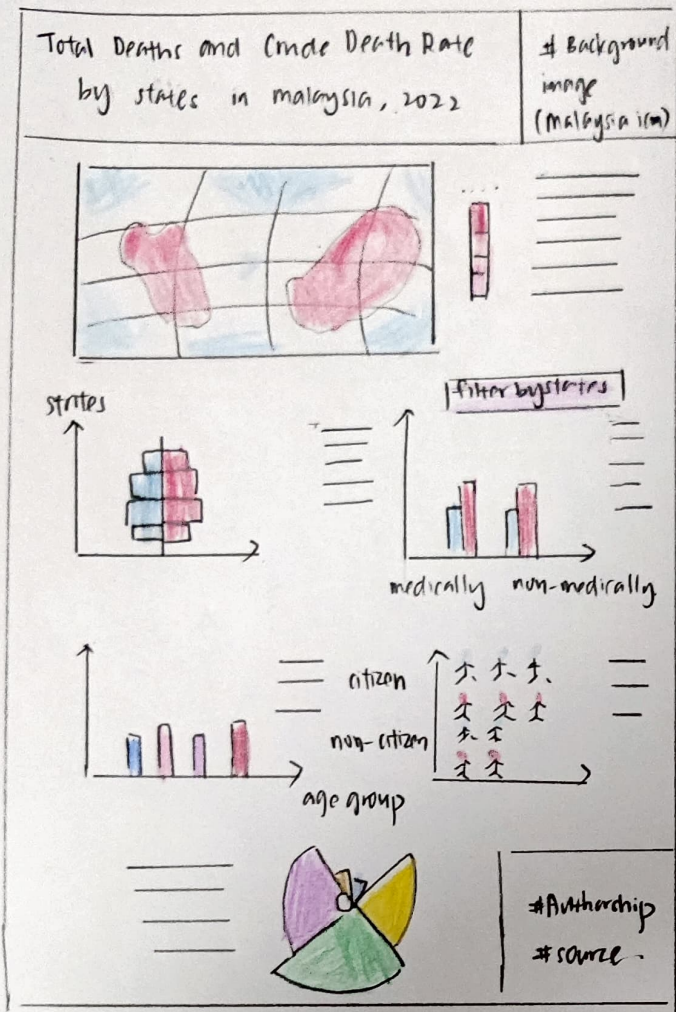 Total Deaths and Crude Death Rate
by states in malaysia, 2022
# Background
image
(malaysia icon)
states
filter by states
medically non-medically
citizen
non-citizen
age group
#Authorship
#source.